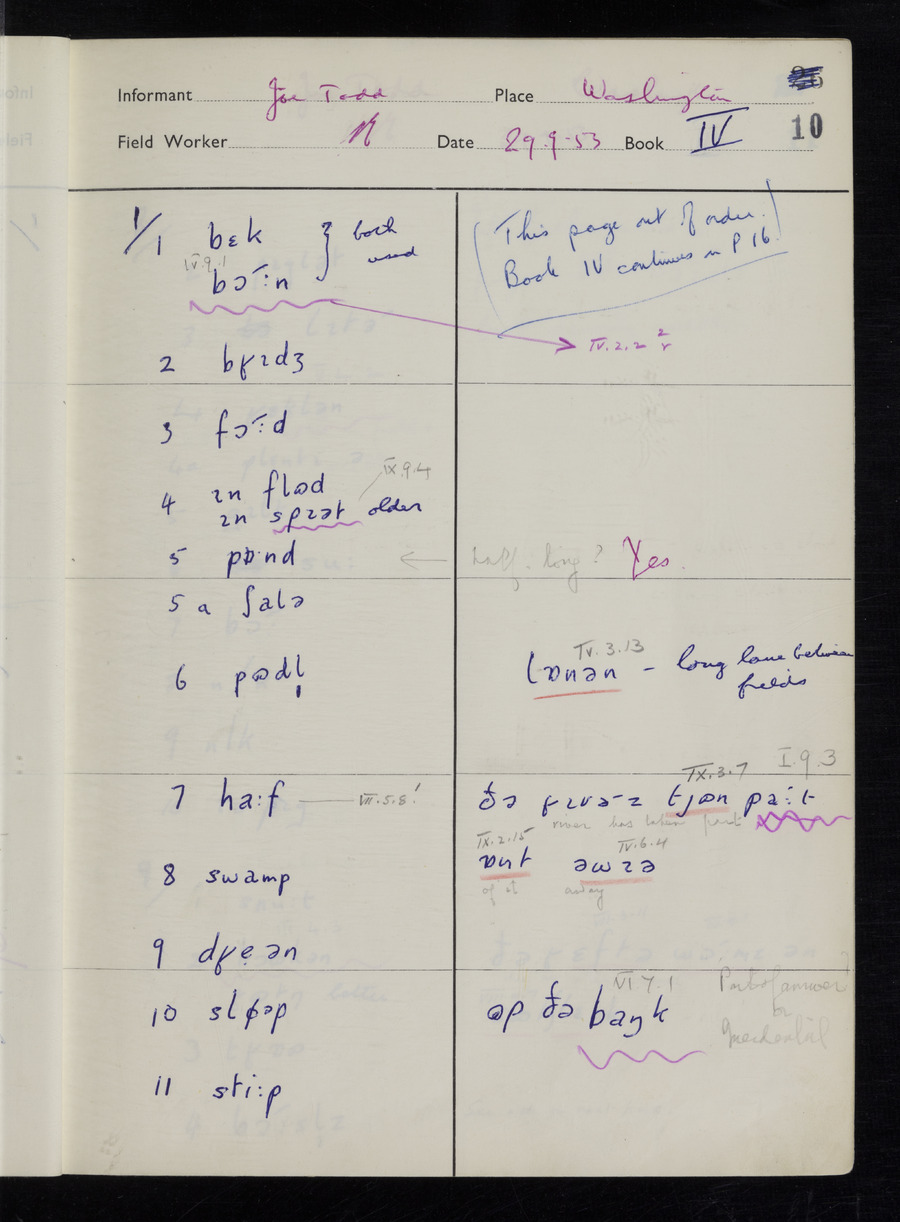 Informant Joe Todd Place Washington
Field Worker Date 29.9.53 Book IV 10
1/1 bɛk } both
IV.9.1 used
bɔ̄:n
(This page out of order.
Book IV continues on P 16.)
IV.2.2
2 bɼɪdʒ
3 fɔ̄:d
IX.9.4
4 ɪn flɷd
ɪn spɪət older
5 pɒ·nd ← half-long? Yes.
5a ʃalə
IV.3.13
6 pɷdl̩ lɒnən – long lane between
fields
7 ha:f — VII.5.8!
IX.3.7 I.9.3
ðə ɼɪvə-z tjɷn pa:t
river has taken part
IX.2.15 IV.6.4
ɒnt əwɪə
of it away
8 swamp
9 dɼeən
VI 7.1 Part of answer
or
incidental
10 slɸəp ɷp ðə baŋk
11 sti:p